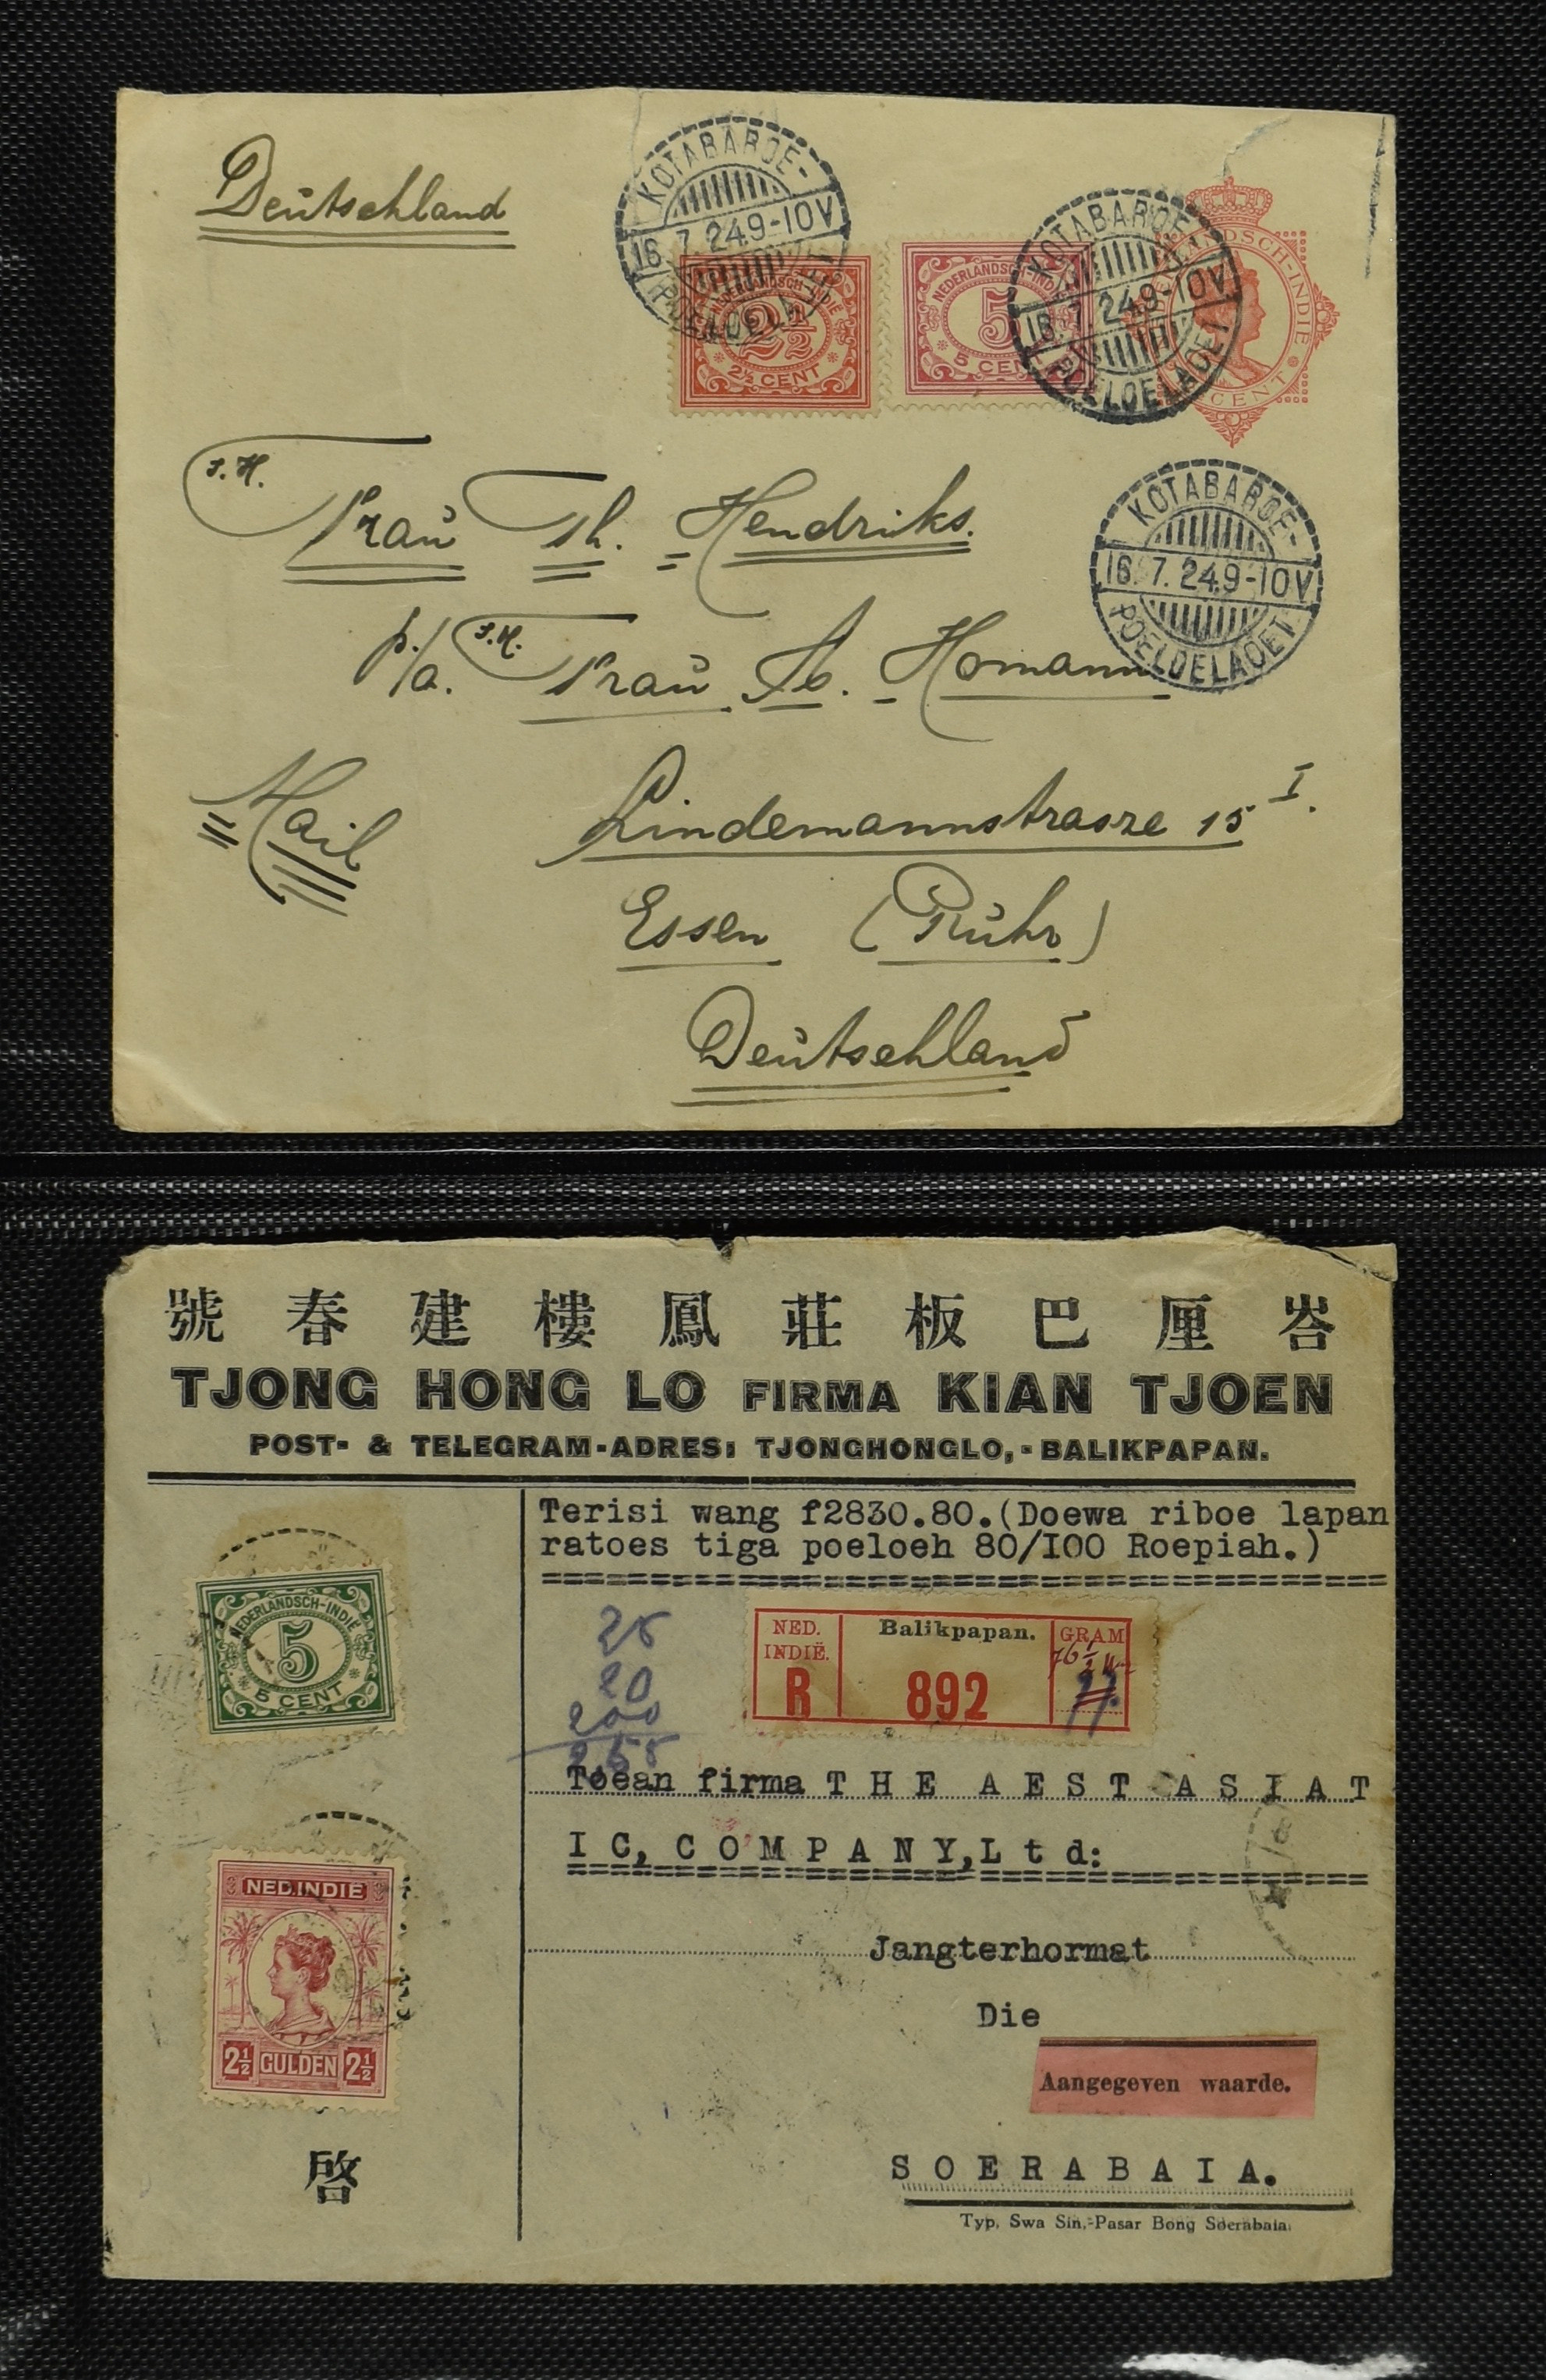 Deutschland
KOTABAROE-
16.7.24.9-10V
POELOELAOET
NEDERLANDSCH-INDIE
2½
2½ CENT
NEDERLANDSCH-INDIE
5
5 CENT
KOTABAROE-
16.7.24.9-10V
POELOELAOET
CENT
KOTABAROE-
16.7.24.9-10V
POELOELAOET
I.H.
Frau Th. Hendriks.
p/a. I.H. Frau A. Homann
Mail
Lindemannstrasze 15 I.
Essen (Ruhr)
Deutschland
號春建樓鳳莊板巴厘峇
TJONG HONG LO FIRMA KIAN TJOEN
POST- & TELEGRAM-ADRES: TJONGHONGLO,-BALIKPAPAN.
Terisi wang f2830.80.(Doewa riboe lapan
ratoes tiga poeloeh 80/I00 Roepiah.)
NEDERLANDSCH-INDIE
5
5 CENT
25
20
200
NED. INDIË.
R
Balikpapan.
892
GRAM
Toean firma THE AEST ASIAT
IC, COMPANY, Ltd:
NED. INDIË
2½ GULDEN 2½
Jangterhormat
Die
Aangegeven waarde.
啓
SOERABAIA.
Typ. Swa Sin,-Pasar Bong Soerabaia.